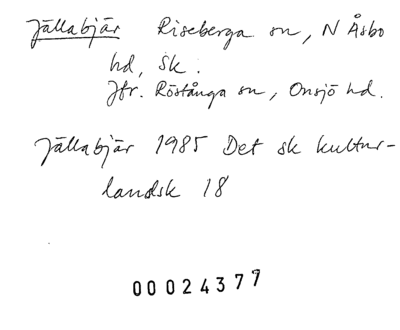 Jällabjär Riseberga sn, N Åsbo
hd, Sk.
Jfr. Röstånga sn, Onsjö hd.
Jällabjär 1985 Det sk kultur-
landsk 18
00024377